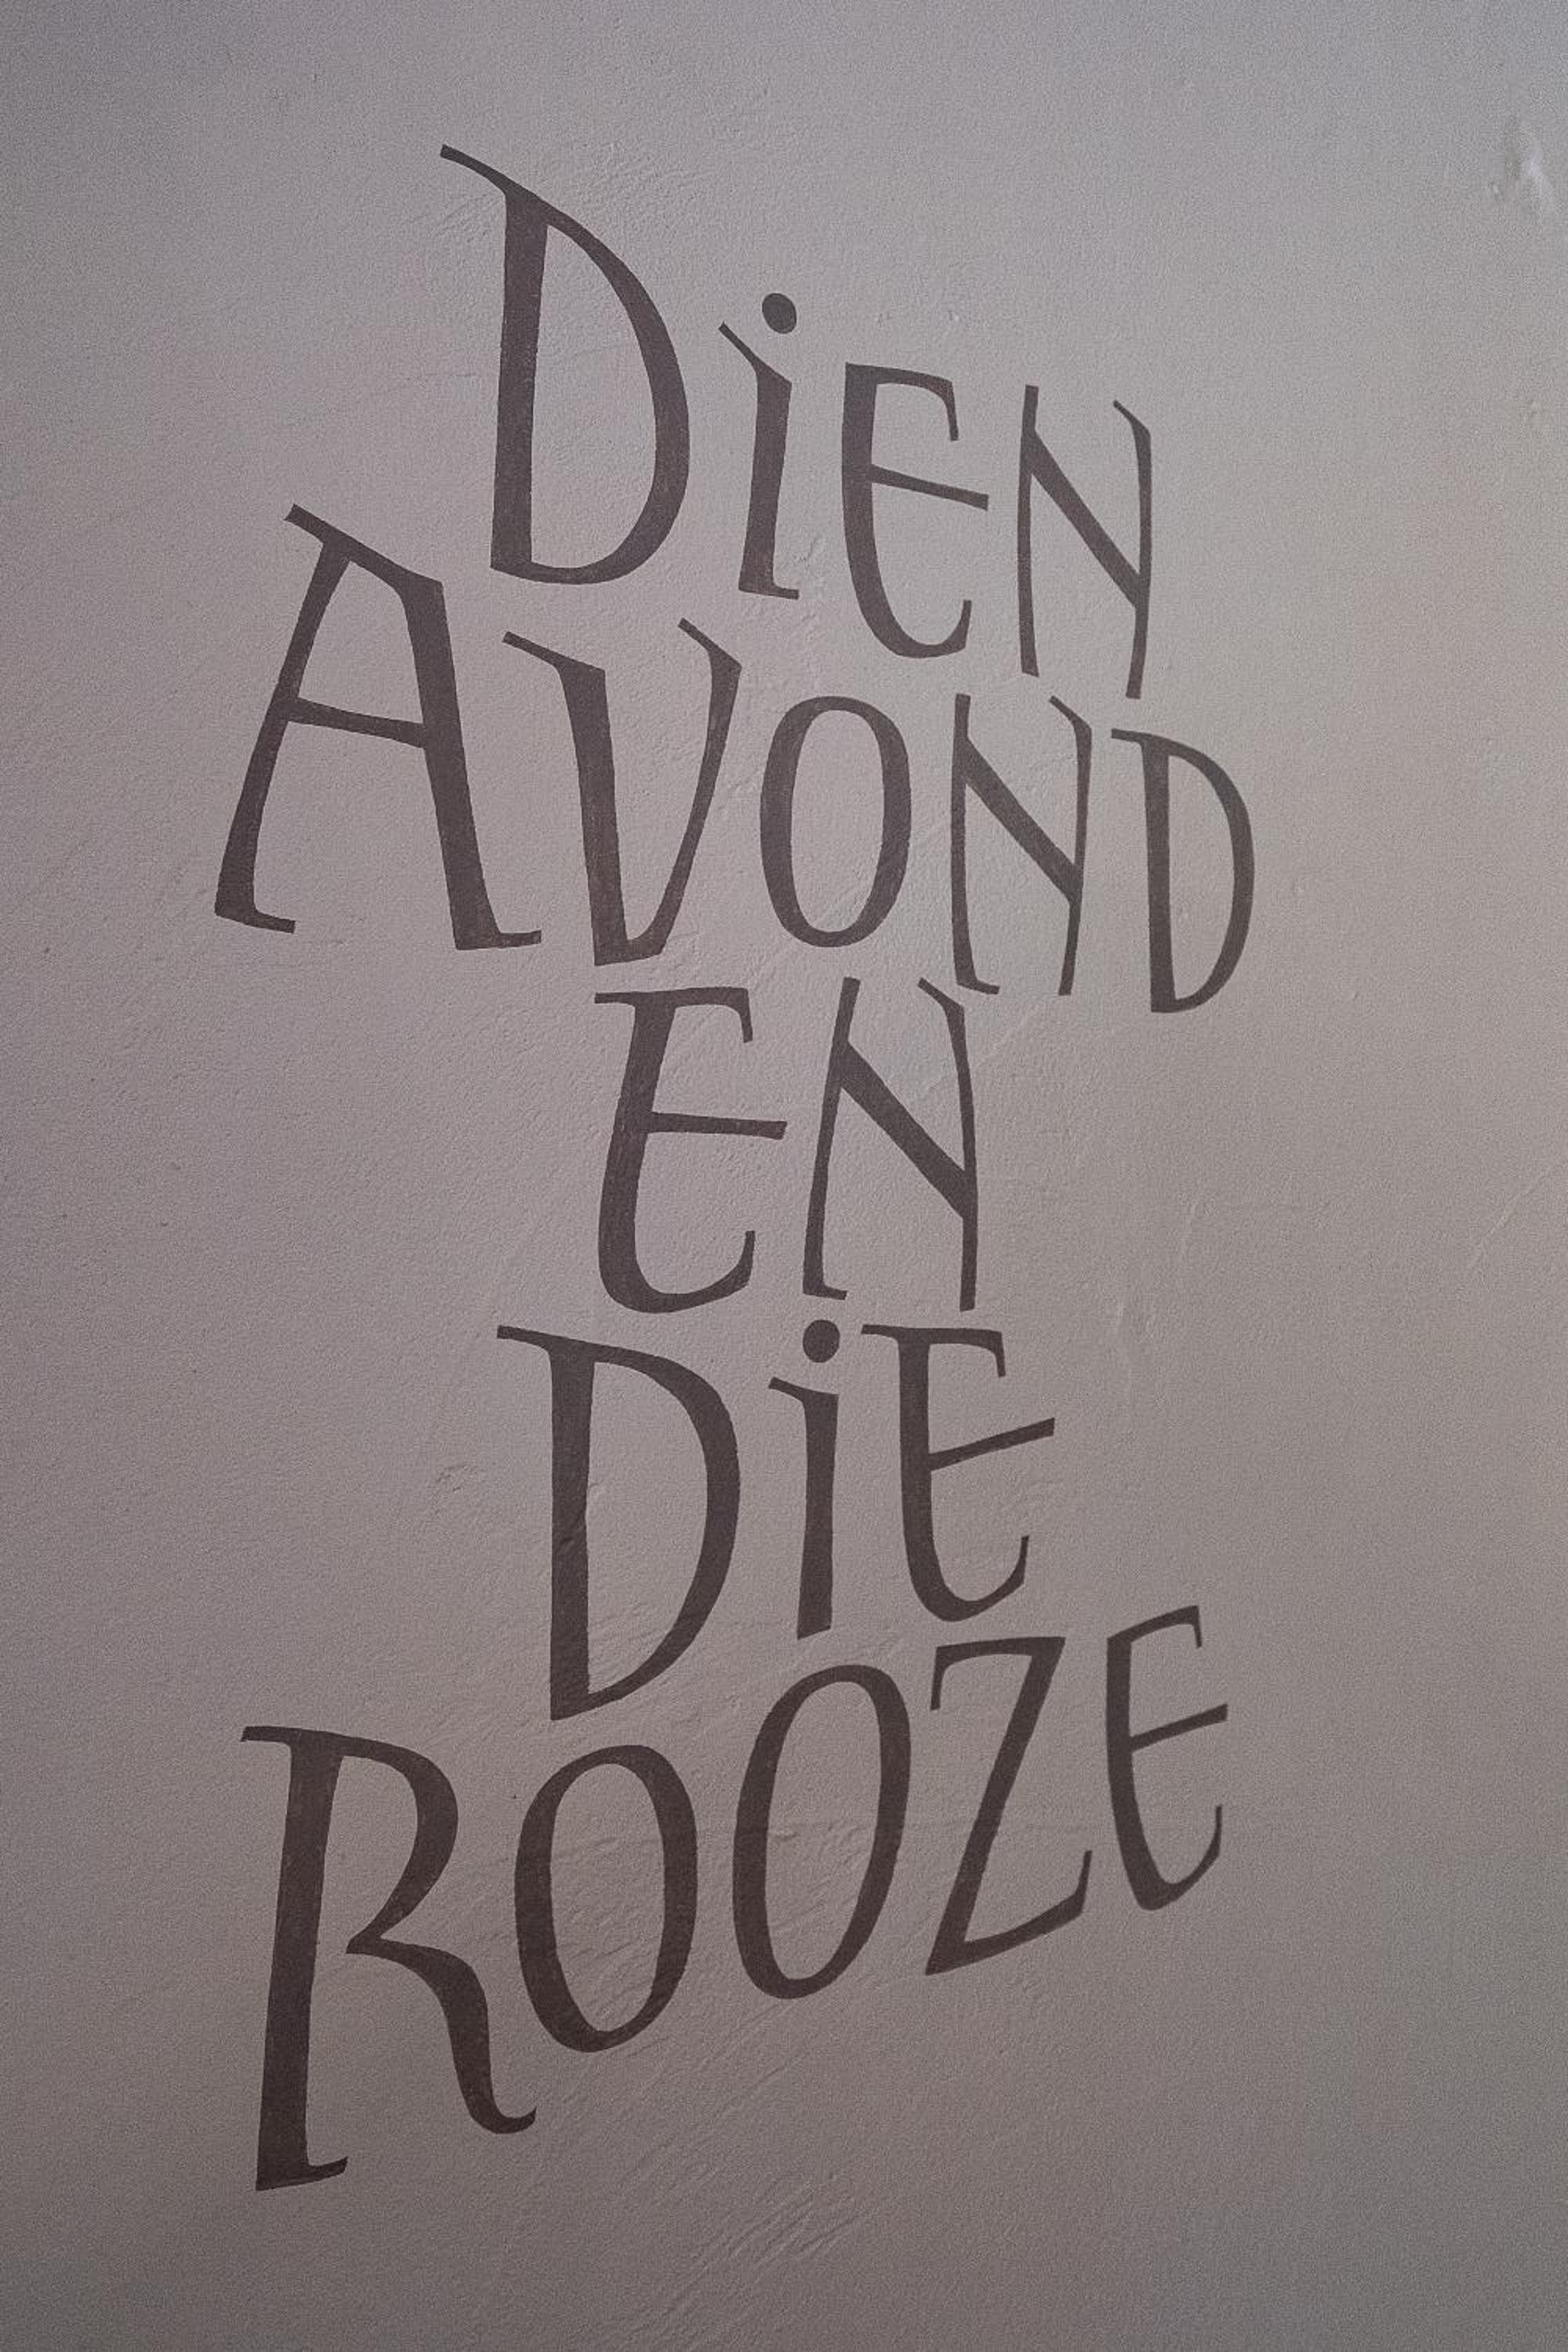 DiEN
AVOND
EN
DiE
ROOZE